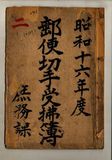 昭和十六年度
郵便切手受拂簿
庶務課
二